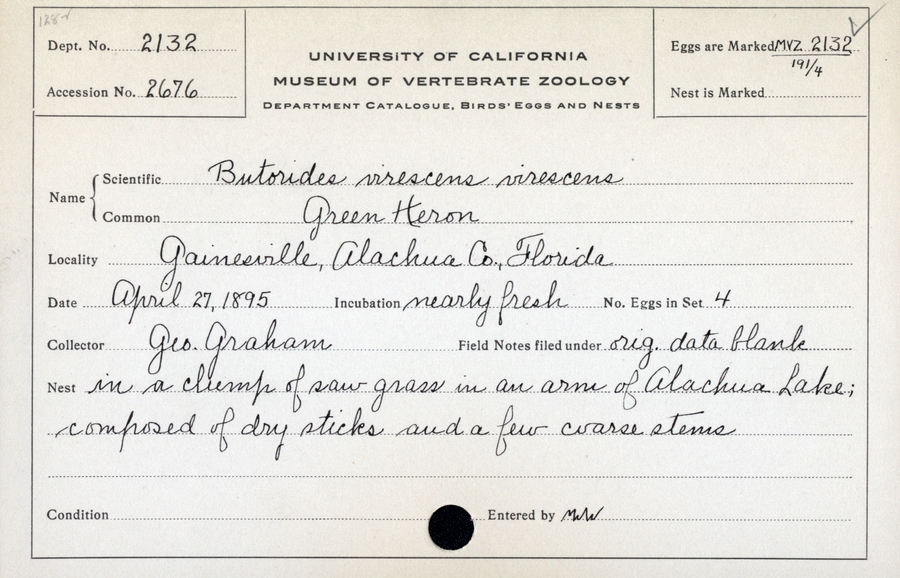 Dept. No. 2132
Accession No. 2676
UNIVERSITY OF CALIFORNIA
MUSEUM OF VERTEBRATE ZOOLOGY
DEPARTMENT CATALOGUE, BIRDS' EGGS AND NESTS
Eggs are Marked MVZ 2132
191/4
Nest is Marked
Name
Scientific Butorides virescens virescens
Common Green Heron
Locality Gainesville, Alachua Co., Florida
Date April 27, 1895 Incubation nearly fresh No. Eggs in Set 4
Collector Geo. Graham Field Notes filed under orig. data blank
Nest in a clump of saw grass in an arm of Alachua Lake;
composed of dry sticks and a few coarse stems
Condition Entered by